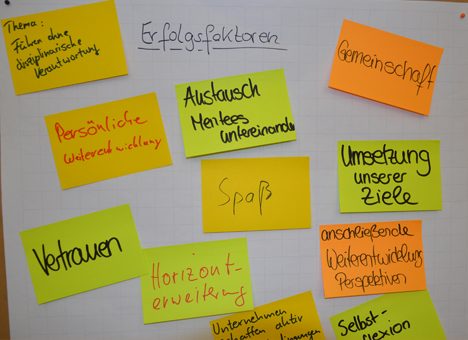 Thema:
Führen ohne
disziplinarische
Verantwortung
Erfolgsfaktoren
Gemeinschaft
Austausch
Mentees
untereinander
Persönliche
Weiterentwicklung
Umsetzung
unserer
Ziele
Spaß
Vertrauen
anschließende
Weiterentwicklung
Perspektiven
Horizont-
erweiterung
Unternehmen
schaffen aktiv
Selbst-
reflexion